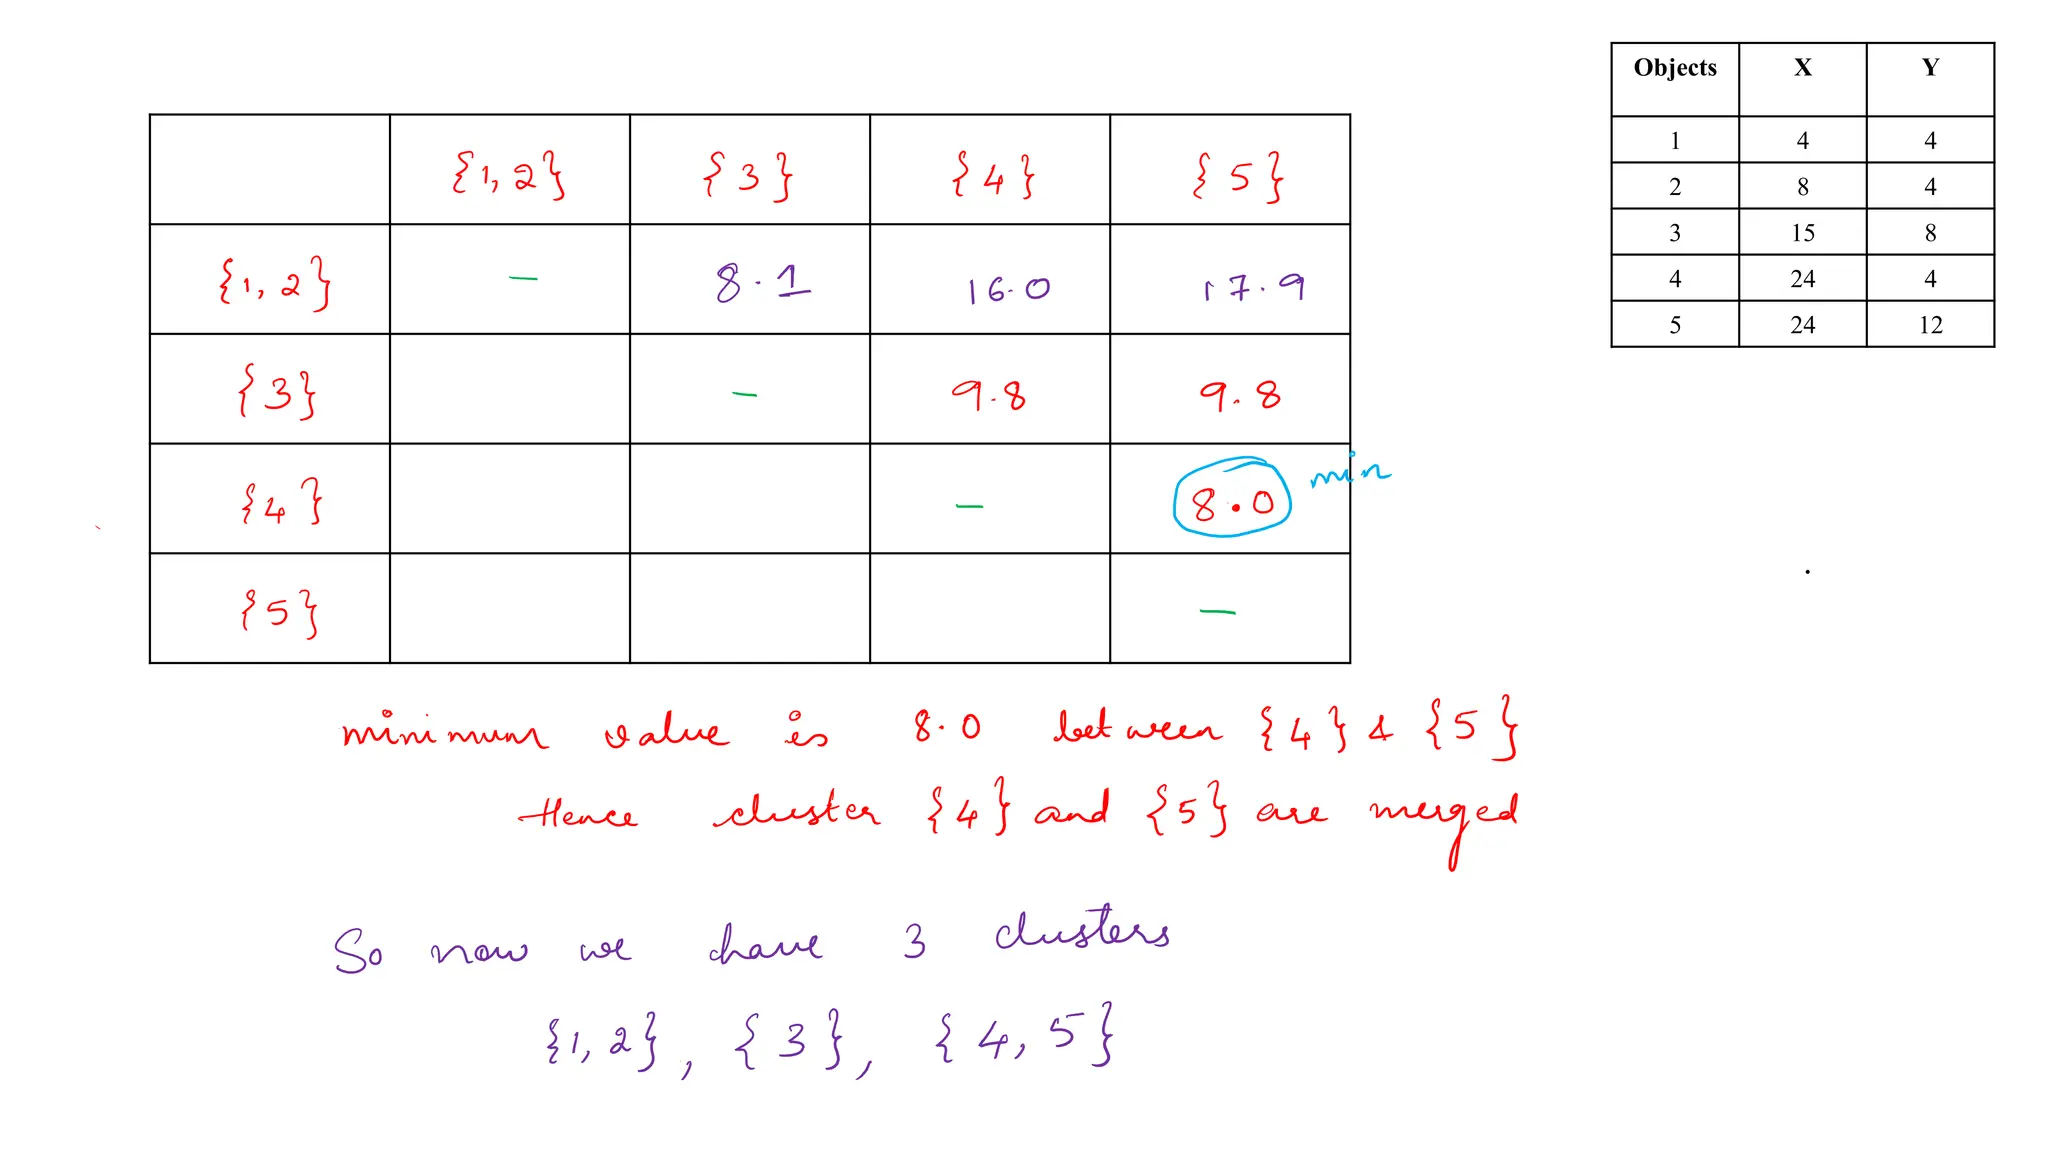 Objects X Y
1 4 4
2 8 4
3 15 8
4 24 4
5 24 12
{1, 2} {3} {4} {5}
{1, 2} – 8.1 16.0 17.9
{3} – 9.8 9.8
{4} – 8.0 min
{5} –
minimum value is 8.0 between {4} & {5}
Hence cluster {4} and {5} are merged
So now we have 3 clusters
{1, 2}, {3}, {4, 5}